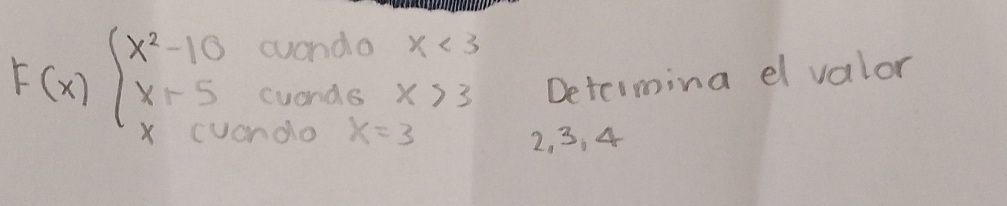 F(x) { x² - 10 cuando x < 3
x + 5 cuando x > 3
x cuando x = 3
Determina el valor
2, 3, 4